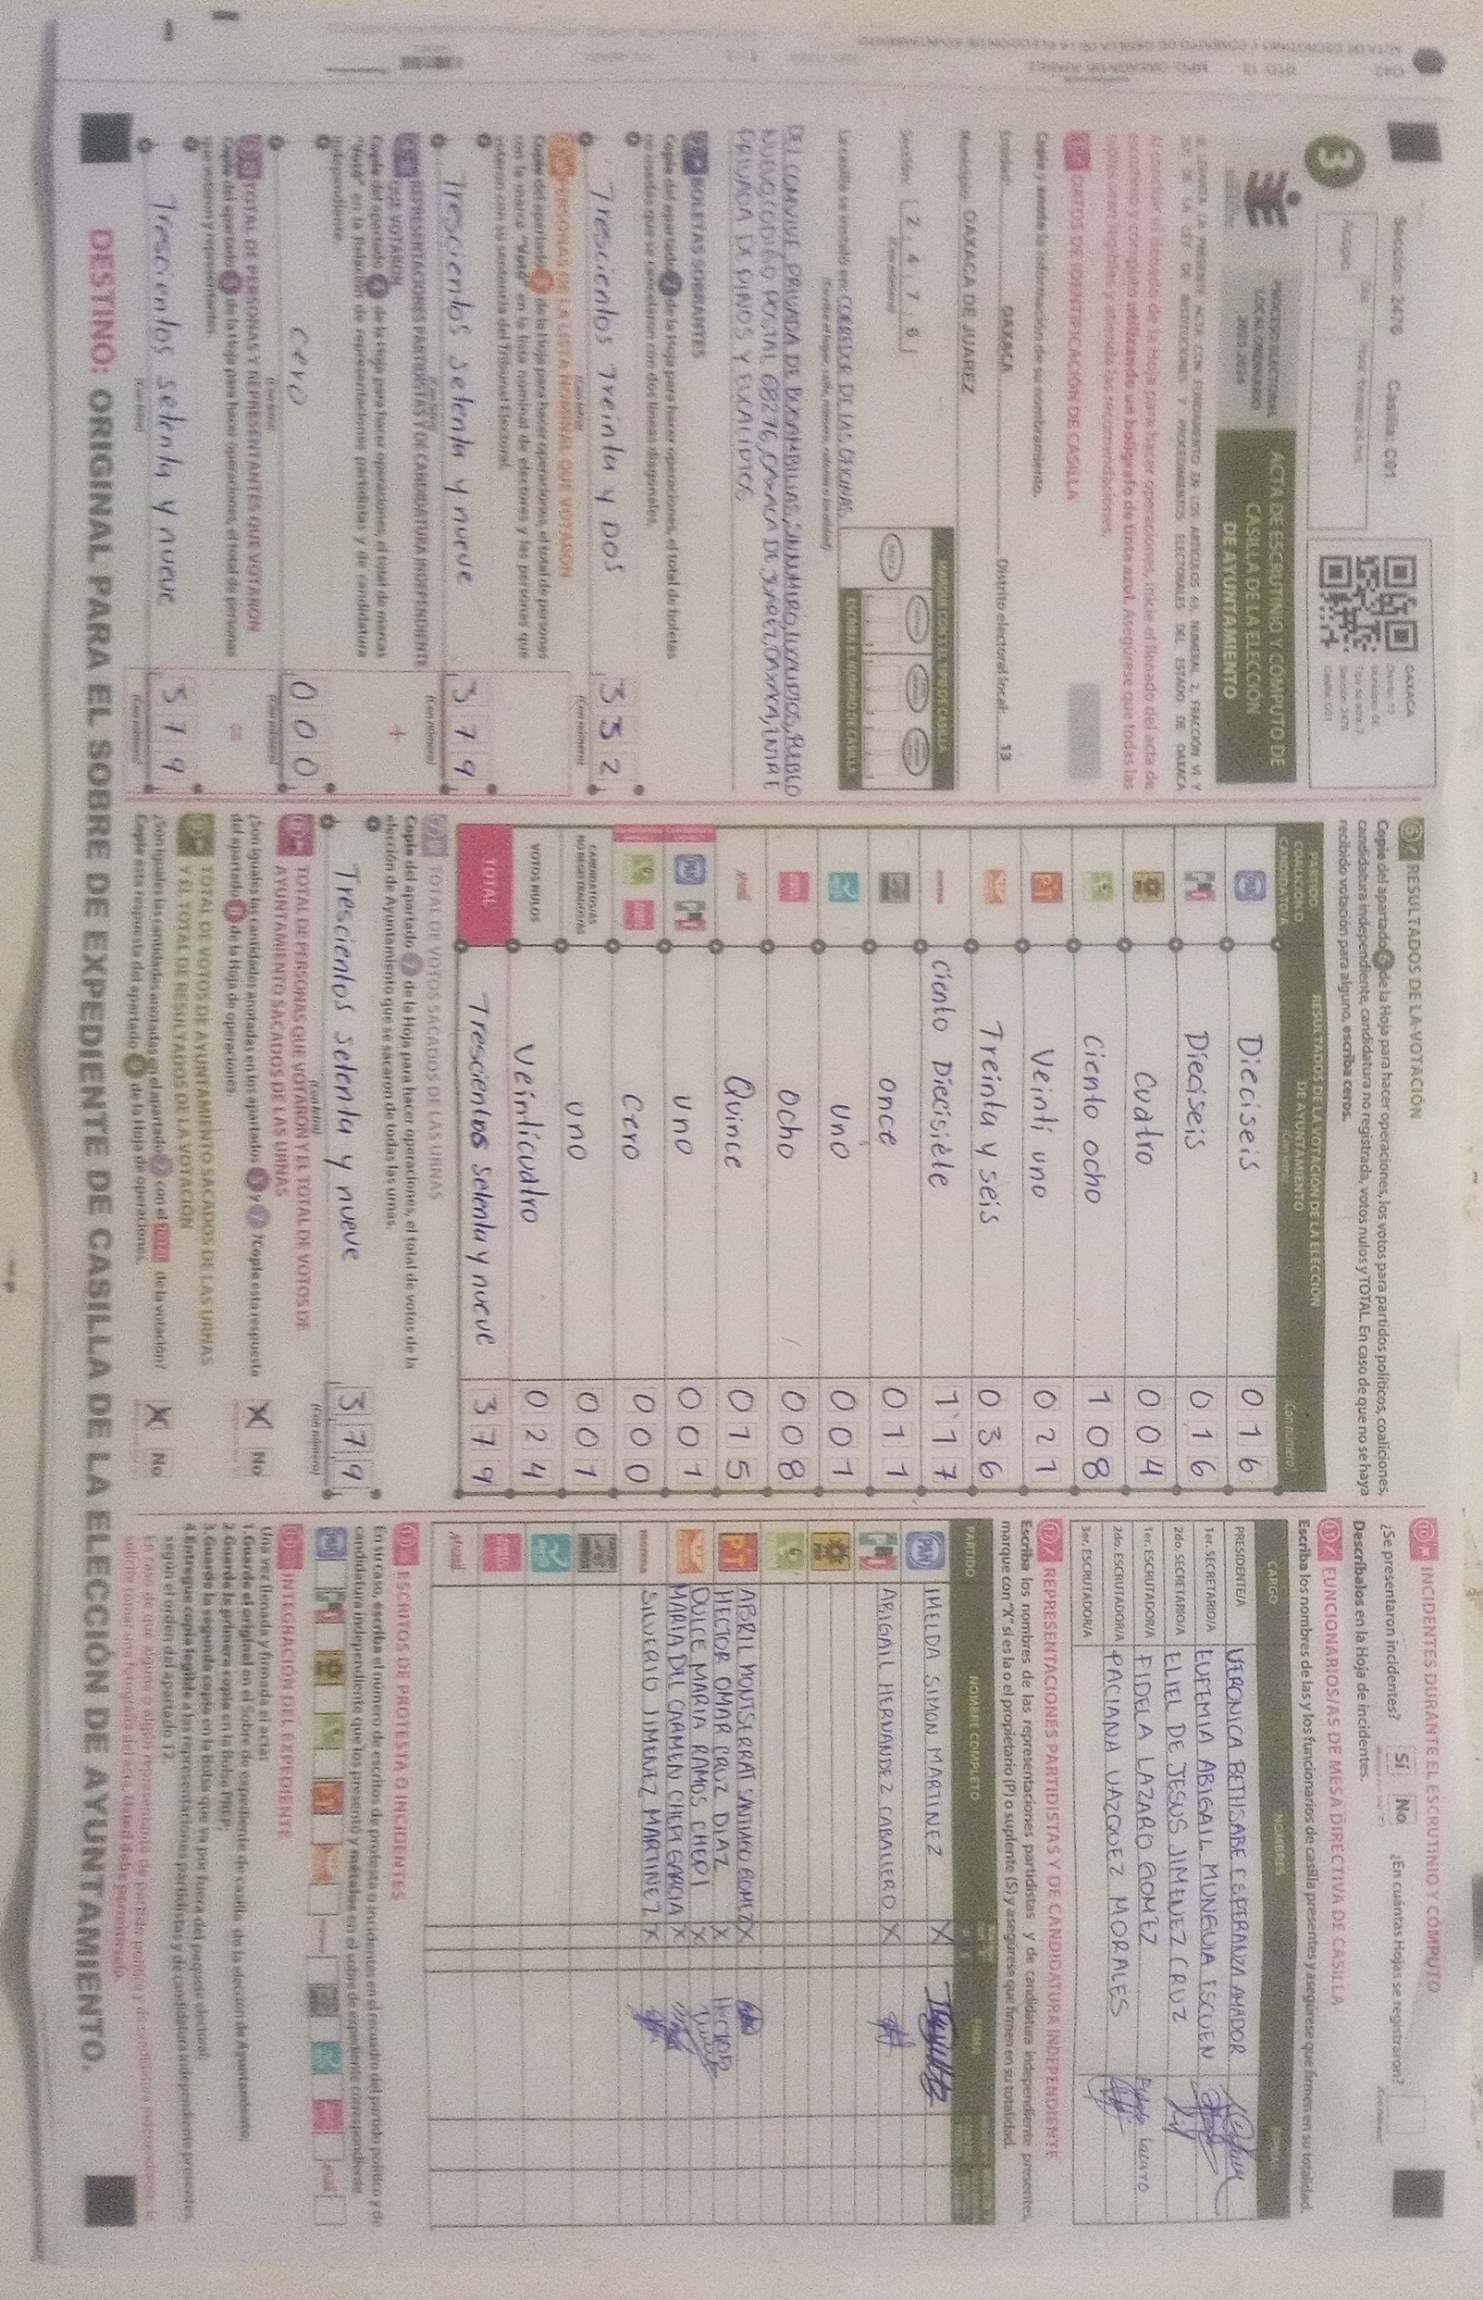 Sección: 2476 Casilla: C01
3
Acopio
OAXACA
PROCESO ELECTORAL
LOCAL ORDINARIO
2023-2024
ACTA DE ESCRUTINIO Y CÓMPUTO DE
CASILLA DE LA ELECCIÓN
DE AYUNTAMIENTO
Al concluir el llenado de la Hoja para hacer operaciones, inicie el llenado del acta de
escrutinio y cómputo utilizando un bolígrafo de tinta azul. Asegúrese que todas las
copias sean legibles y atienda las recomendaciones.
1 DATOS DE IDENTIFICACIÓN DE CASILLA
Copie y anote la información de su nombramiento.
Entidad: OAXACA Distrito electoral local: 13
Municipio: OAXACA DE JUAREZ
Sección: 2 4 7 6
(Con número)
MARQUE CON X EL TIPO DE CASILLA
ESCRIBA EL NÚMERO DE CASILLA
La casilla se instaló en: CORREDOR DE LAS OFICINAS
(Escriba el lugar, calle, número, colonia o localidad)
DEL COMVIVE, PRIVADA DE BUGAMBILIAS, SIN NUMERO, EUCALIPTOS, PUEBLO
NUEVO, CODIGO POSTAL 68276, OAXACA DE JUAREZ, OAXACA, ENTRE
PRIVADA DE PINOS Y EUCALIPTOS
2 BOLETAS SOBRANTES
Copie del apartado 2 de la Hoja para hacer operaciones, el total de boletas
no usadas que se cancelaron con dos líneas diagonales.
Trescientos Treinta y Dos 332
(Con letra) (Con número)
3 PERSONAS DE LA LISTA NOMINAL QUE VOTARON
Copie del apartado 3 de la Hoja para hacer operaciones, el total de personas
con la marca "Votó" en la lista nominal de electores y las personas que
votaron con su sentencia del Tribunal Electoral.
Trescientos Setenta y nueve 379
(Con letra) (Con número)
4 REPRESENTACIONES PARTIDISTAS Y DE CANDIDATURA INDEPENDIENTE
QUE VOTARON
Copie del apartado 4 de la Hoja para hacer operaciones, el total de marcas
"Votó" en la Relación de representaciones partidistas y de candidatura
independiente.
cero 000
(Con letra) (Con número)
5 TOTAL DE PERSONAS Y REPRESENTANTES QUE VOTARON
Copie del apartado 5 de la Hoja para hacer operaciones, el total de personas
que votaron y representantes.
Trescientos setenta y nueve 379
(Con letra) (Con número)
6 RESULTADOS DE LA VOTACIÓN
Copie del apartado 6 de la Hoja para hacer operaciones, los votos para partidos políticos, coaliciones,
candidatura independiente, candidatura no registrada, votos nulos y TOTAL. En caso de que no se haya
recibido votación para alguno, escriba ceros.
PARTIDO, COALICIÓN O CANDIDATO/A
RESULTADOS DE LA VOTACIÓN DE LA ELECCIÓN
DE AYUNTAMIENTO
(Con letra) (Con número)
PAN Dieciseis 016
PRI Dieciseis 016
PRD Cuatro 004
Ciento ocho 108
PT Veinti uno 021
Treinta y seis 036
morena Ciento Diecisiete 117
once 011
Uno 001
Ocho 008
Quince 015
PAN PRI uno 001
Cero 000
CANDIDATOS/AS NO REGISTRADOS/AS uno 001
VOTOS NULOS Veinticuatro 024
TOTAL Trescientos setenta y nueve 379
7 TOTAL DE VOTOS SACADOS DE LAS URNAS
Copie del apartado 7 de la Hoja para hacer operaciones, el total de votos de la
elección de Ayuntamiento que se sacaron de todas las urnas.
Trescientos setenta y nueve 379
(Con letra) (Con número)
8 TOTAL DE PERSONAS QUE VOTARON Y EL TOTAL DE VOTOS DE
AYUNTAMIENTO SACADOS DE LAS URNAS
¿Son iguales las cantidades anotadas en los apartados 5 y 7? Copie esta respuesta
del apartado 8 de la Hoja de operaciones.
X No
9 TOTAL DE VOTOS DE AYUNTAMIENTO SACADOS DE LAS URNAS
Y EL TOTAL DE RESULTADOS DE LA VOTACIÓN
¿Son iguales las cantidades anotadas en el apartado 7 con el TOTAL de la votación?
Copie esta respuesta del apartado 9 de la Hoja de operaciones.
X No
10 INCIDENTES DURANTE EL ESCRUTINIO Y CÓMPUTO
¿Se presentaron incidentes? Sí No ¿En cuántas Hojas se registraron?
Descríbalos en la Hoja de incidentes.
11 FUNCIONARIOS/AS DE MESA DIRECTIVA DE CASILLA
Escriba los nombres de las y los funcionarios de casilla presentes y asegúrese que firmen en su totalidad.
CARGO NOMBRES FIRMA
PRESIDENTE/A VERONICA BETHSABE ESPERANZA AMADOR
1er. SECRETARIO/A EUFEMIA ABIGAIL MUNGUIA ESCUEN
2do. SECRETARIO/A ELIEL DE JESUS JIMENEZ CRUZ
1er. ESCRUTADOR/A FIDELA LAZARO GOMEZ
2do. ESCRUTADOR/A PACIANA VAZQUEZ MORALES
3er. ESCRUTADOR/A
12 REPRESENTACIONES PARTIDISTAS Y DE CANDIDATURA INDEPENDIENTE
Escriba los nombres de las representaciones partidistas y de candidatura independiente presentes,
marque con "X" si es la o el propietario (P) o suplente (S) y asegúrese que firmen en su totalidad.
PARTIDO NOMBRE COMPLETO FIRMA
PAN IMELDA SIMON MARTINEZ X
ABIGAIL HERNANDEZ CABALLERO X
ABRIL MONTSERRAT SANTIAGO GOMEZ X
PT HECTOR OMAR CRUZ DIAZ X
DULCE MARIA RAMOS CHEPI X
MARIA DEL CARMEN CHEPI GARCIA X
morena SILVERIO JIMENEZ MARTINEZ X
13 ESCRITOS DE PROTESTA O INCIDENTES
En su caso, escriba el número de escritos de protesta o incidentes en el recuadro del partido político y de
candidatura independiente que los presentó y métalos en el sobre de expediente correspondiente.
14 INTEGRACIÓN DEL EXPEDIENTE
Una vez llenada y firmada el acta:
1. Guarde el original en el Sobre de expediente de casilla de la elección de Ayuntamiento;
2. Guarde la primera copia en la Bolsa PREP;
3. Guarde la segunda copia en la Bolsa que va por fuera del paquete electoral;
4. Entregue copia legible a las representaciones partidistas y de candidatura independiente presentes,
según el orden del apartado 12.
DESTINO: ORIGINAL PARA EL SOBRE DE EXPEDIENTE DE CASILLA DE LA ELECCIÓN DE AYUNTAMIENTO.